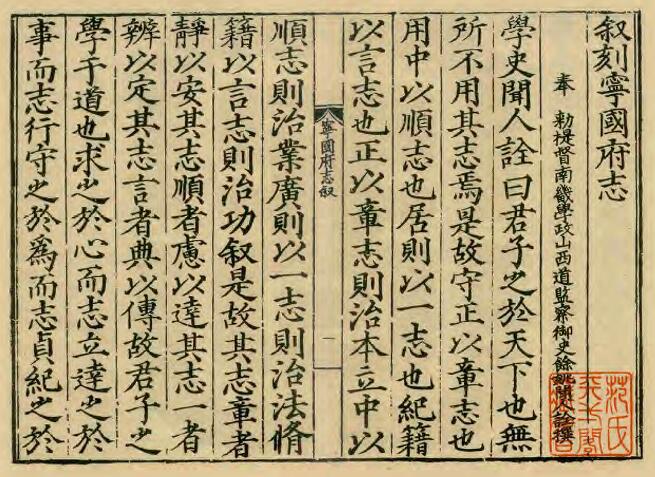 叙刻寧國府志
奉 勑提督南畿學政山西道監察御史餘姚聞人詮撰
學史聞人詮曰君子之於天下也無
所不用其志焉是故守正以章志也
用中以順志也居則以一志也紀籍
以言志也正以章志則治本立中以
寧國府志叙
一
順志則治業廣則以一志則治法脩
籍以言志則治功叙是故其志章者
靜以安其志順者慮以達其志一者
辨以定其志言者典以傳故君子之
學于道也求之於心而志立達之於
事而志行守之於為而志貞紀之於
范氏
天一閣